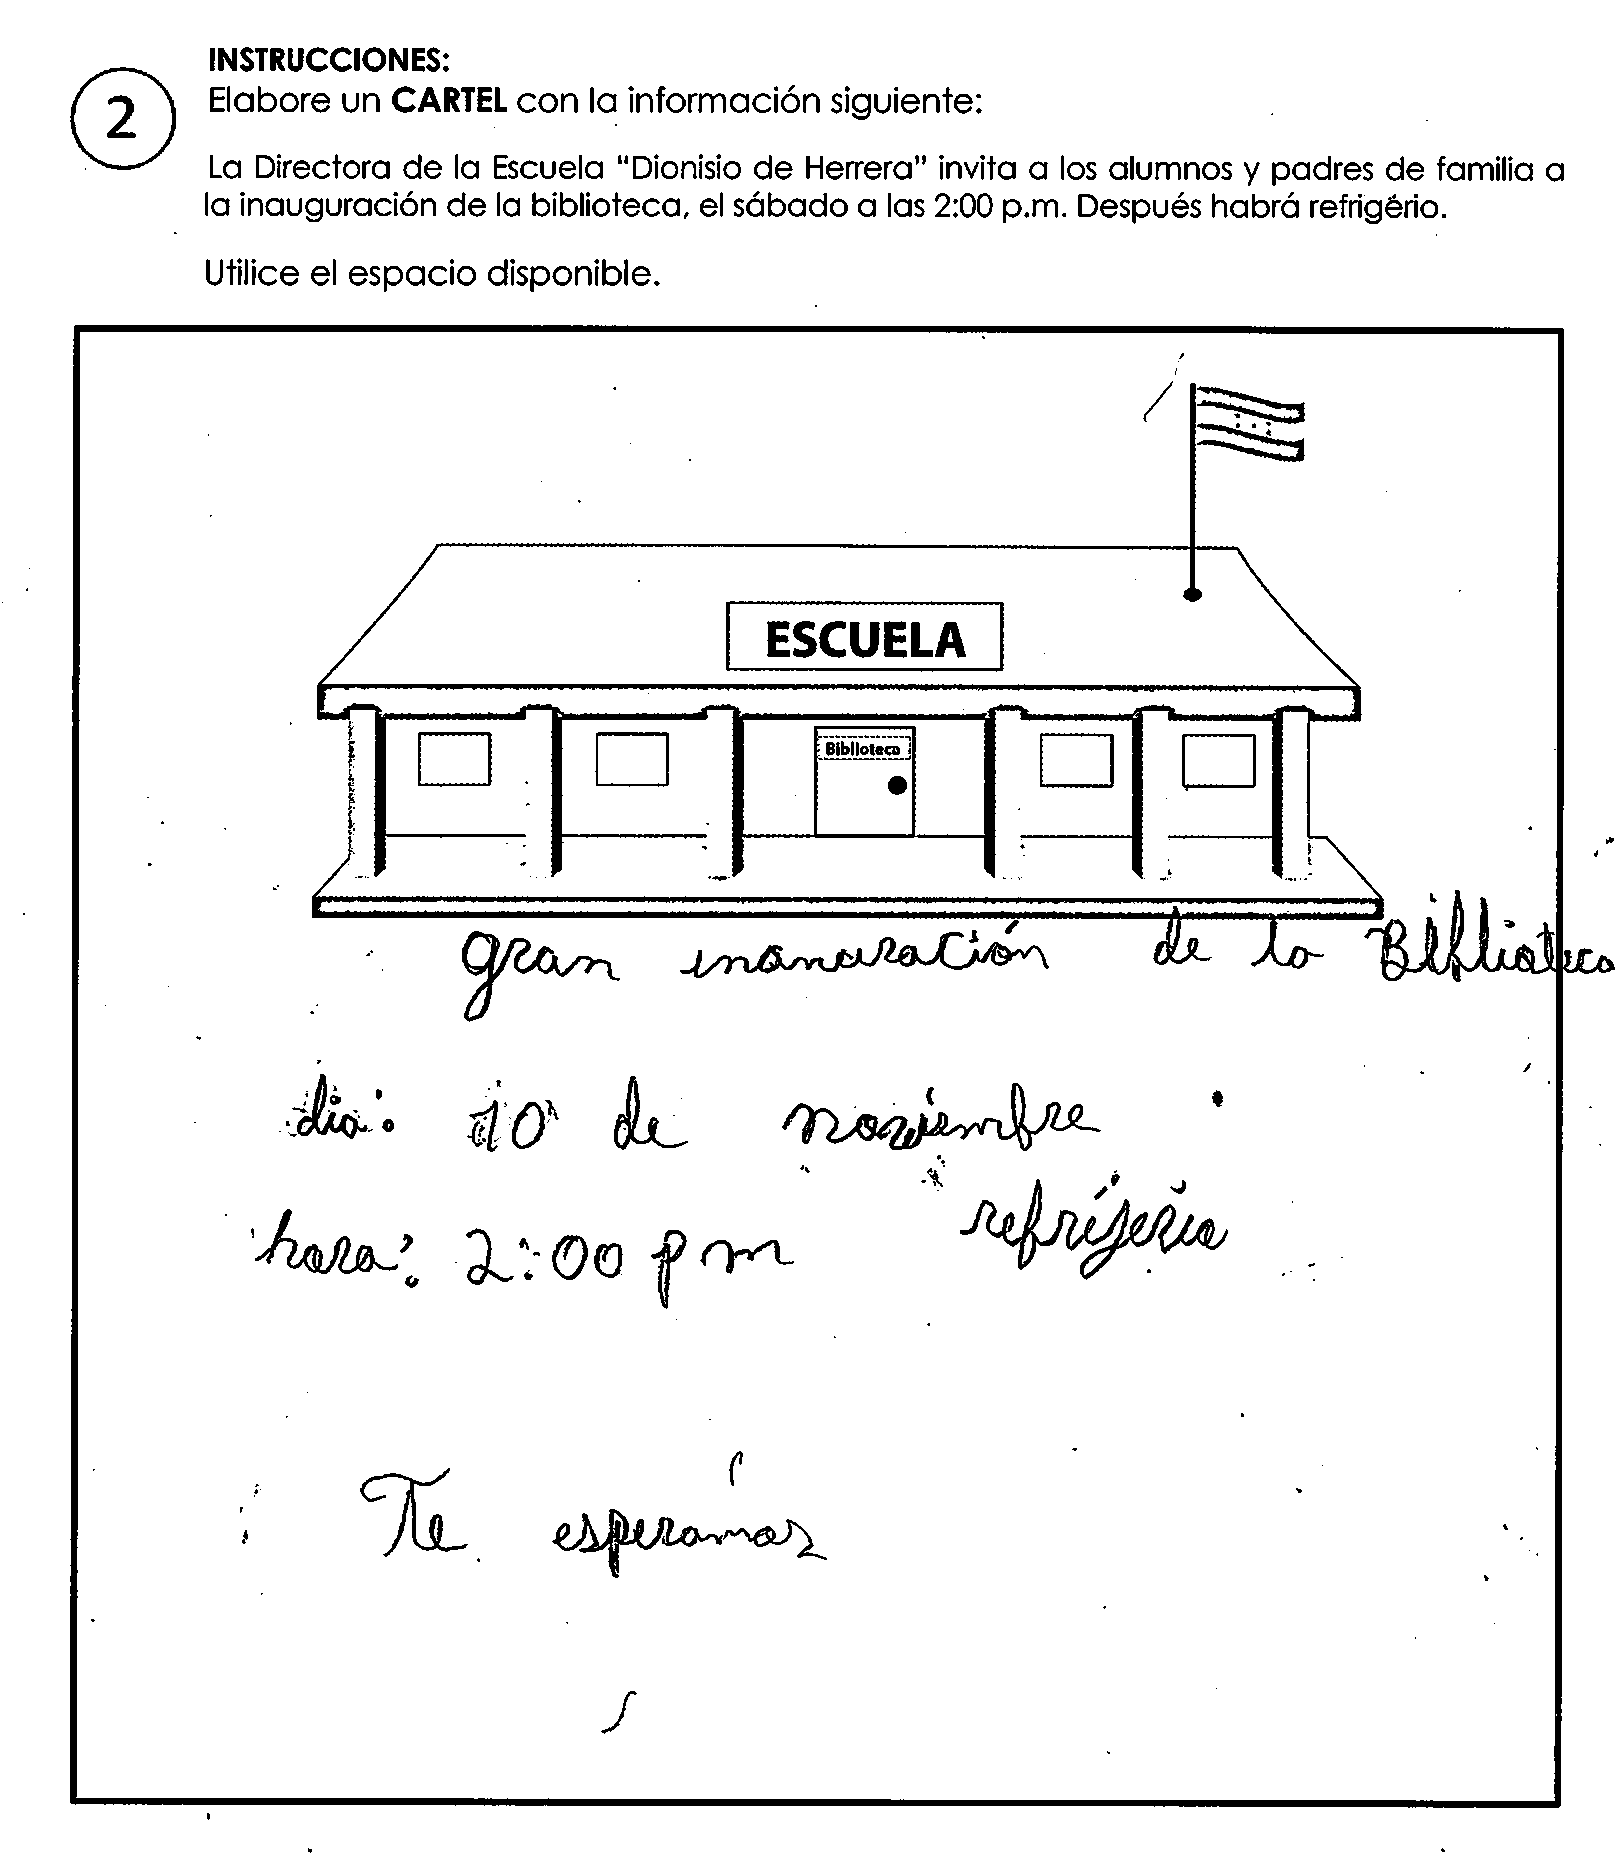 INSTRUCCIONES:
2
Elabore un CARTEL con la información siguiente:
La Directora de la Escuela "Dionisio de Herrera" invita a los alumnos y padres de familia a
la inauguración de la biblioteca, el sábado a las 2:00 p.m. Después habrá refrigério.
Utilice el espacio disponible.
ESCUELA
Biblioteca
gran inanuración de la Biblioteca
dia: 10 de noviembre
refrijerio
hora: 2:00 pm
Te esperamos